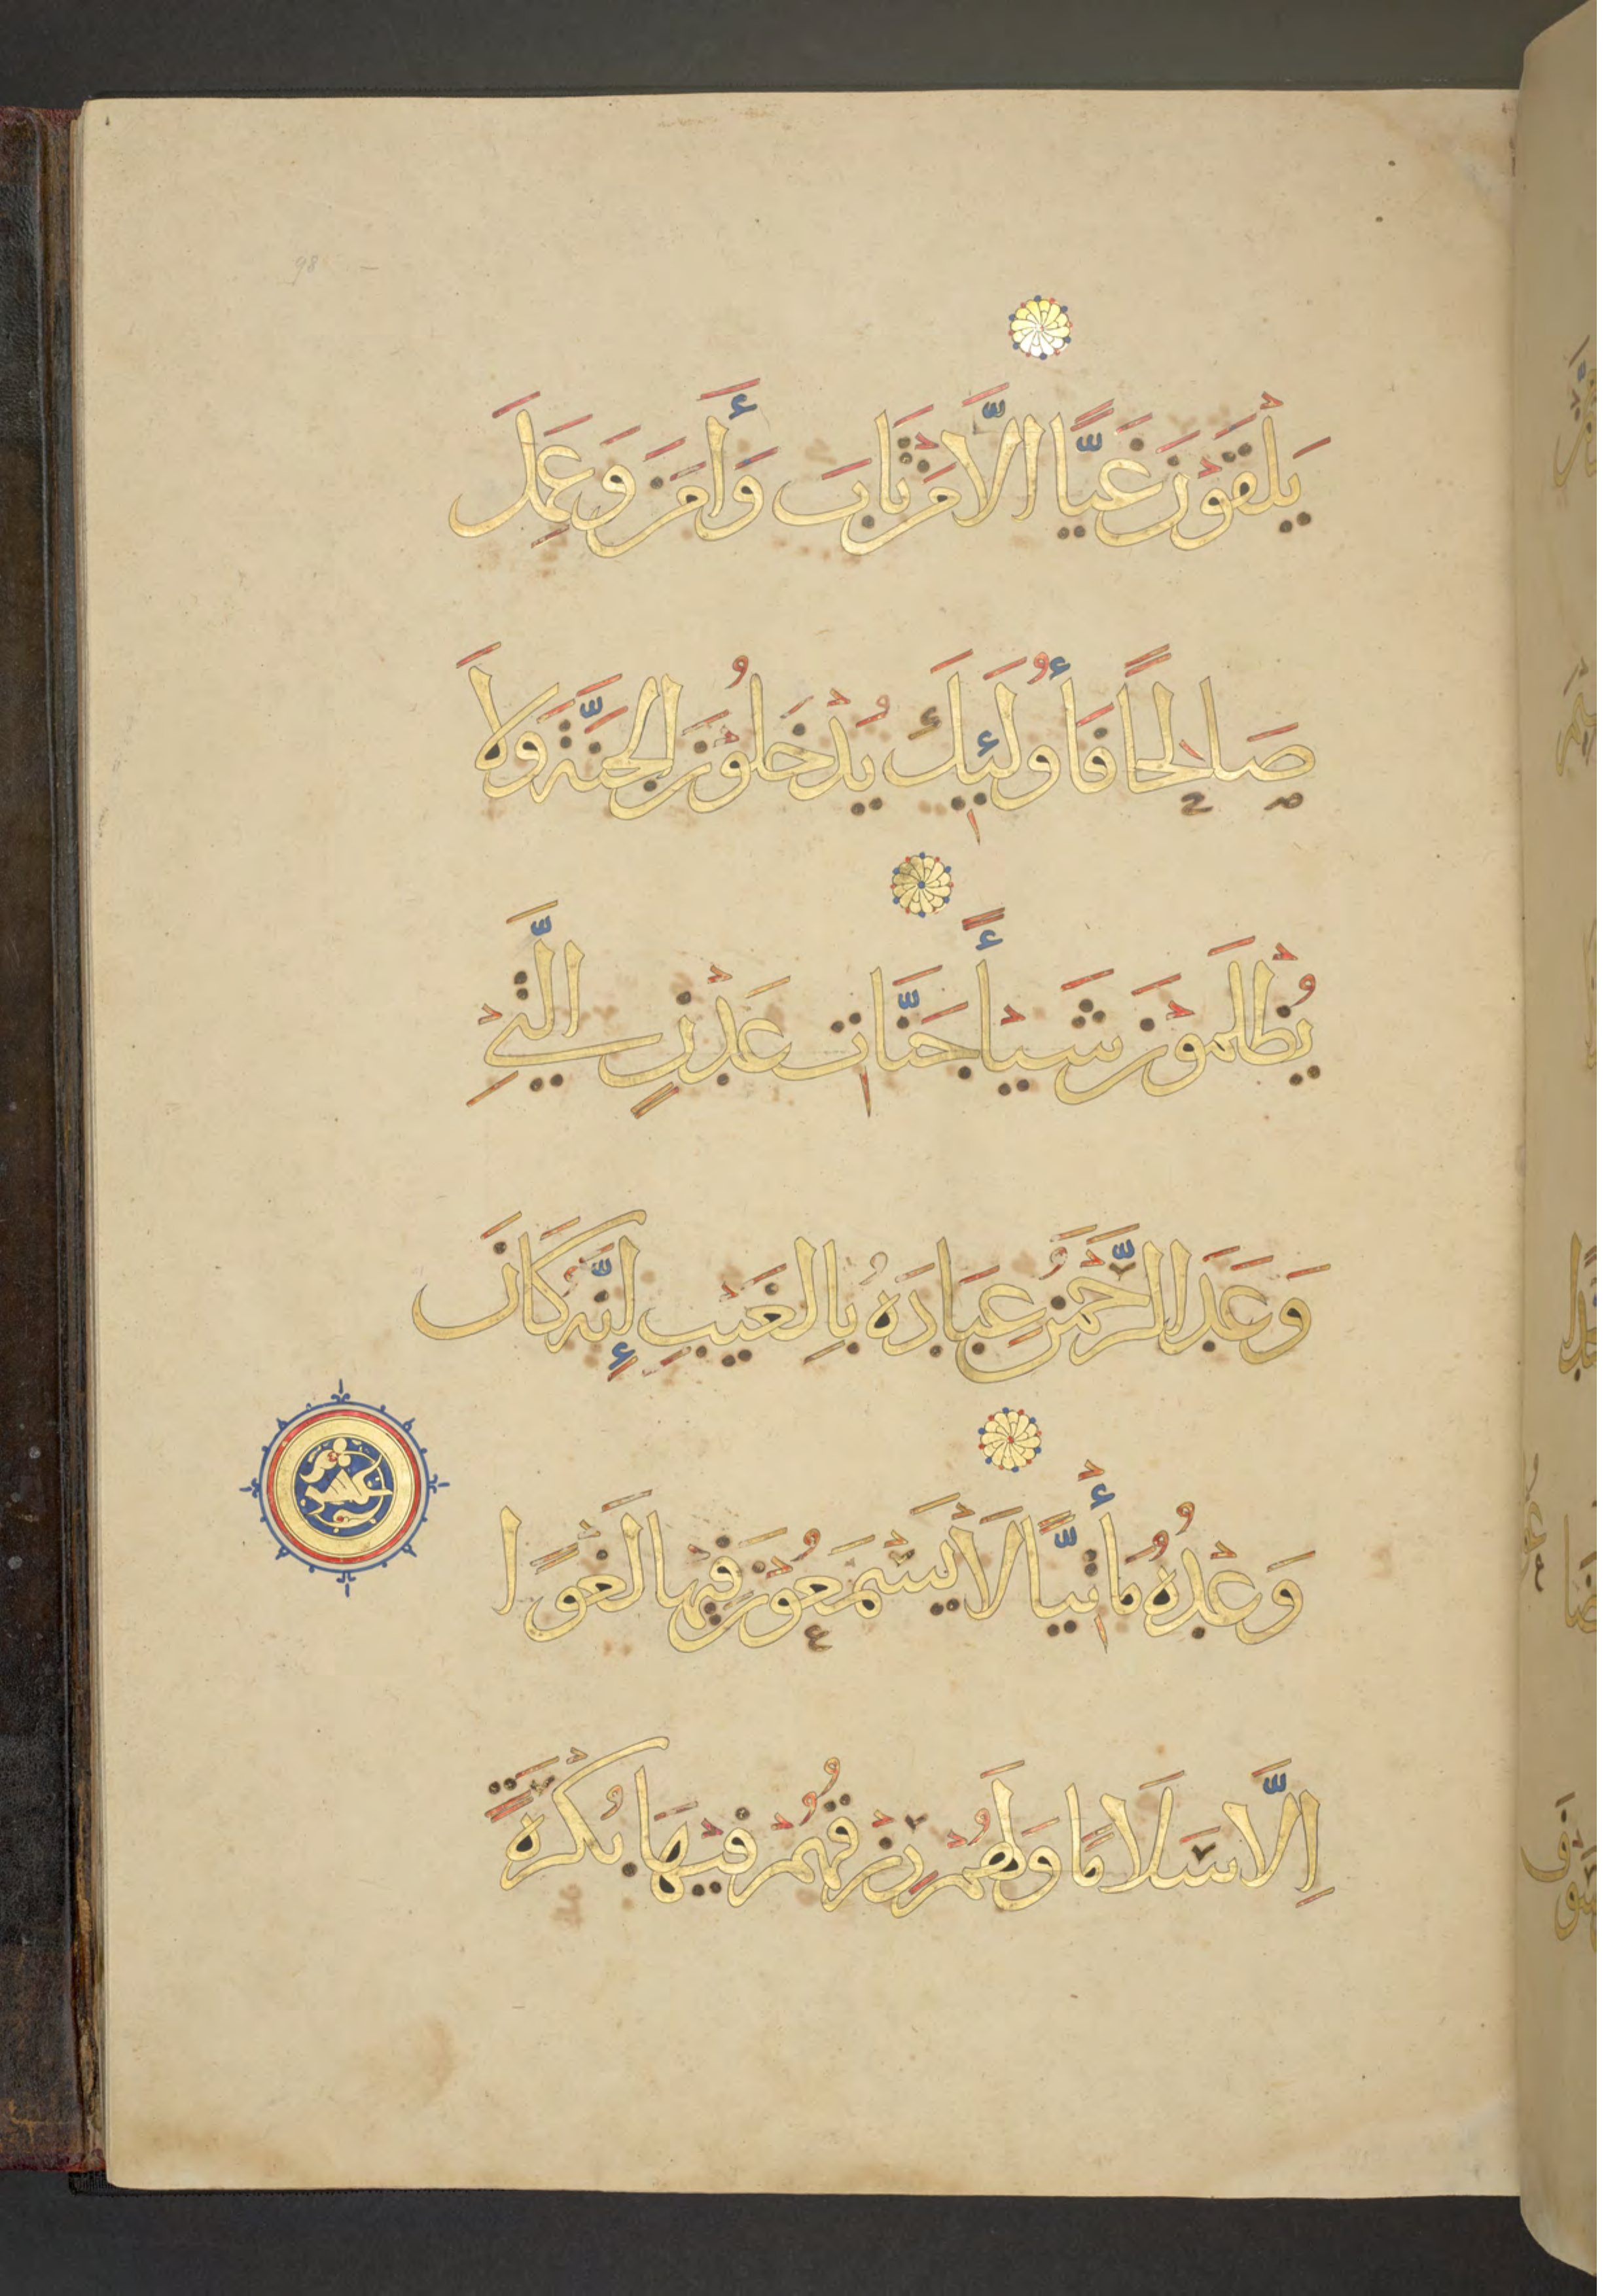 يَلْقَوْنَ غَيًّا الَّا مَنْ تَابَ وَأَمَنَ وَعَمِلَ
صَالِحًا فَأُولَئِكَ يُدْخَلُونَ الجَنَّةَ وَلَا
يُظْلَمُوْنَ شَيْأً جَنَّاتِ عَدْنٍ الَّتِيْ
وَعَدَ الرَّحْمَنُ عِبَادَهُ بِالغَيْبِ إِنَّهُ كَانَ
وَعْدُهُ مَأْتِيًّا لَا يَسْمَعُوْنَ فِيْهَا لَغْوًا
اِلَّا سَلَامًا وَلَهُمْ رِزْقُهُمْ فِيْهَا بُكْرَةً
98